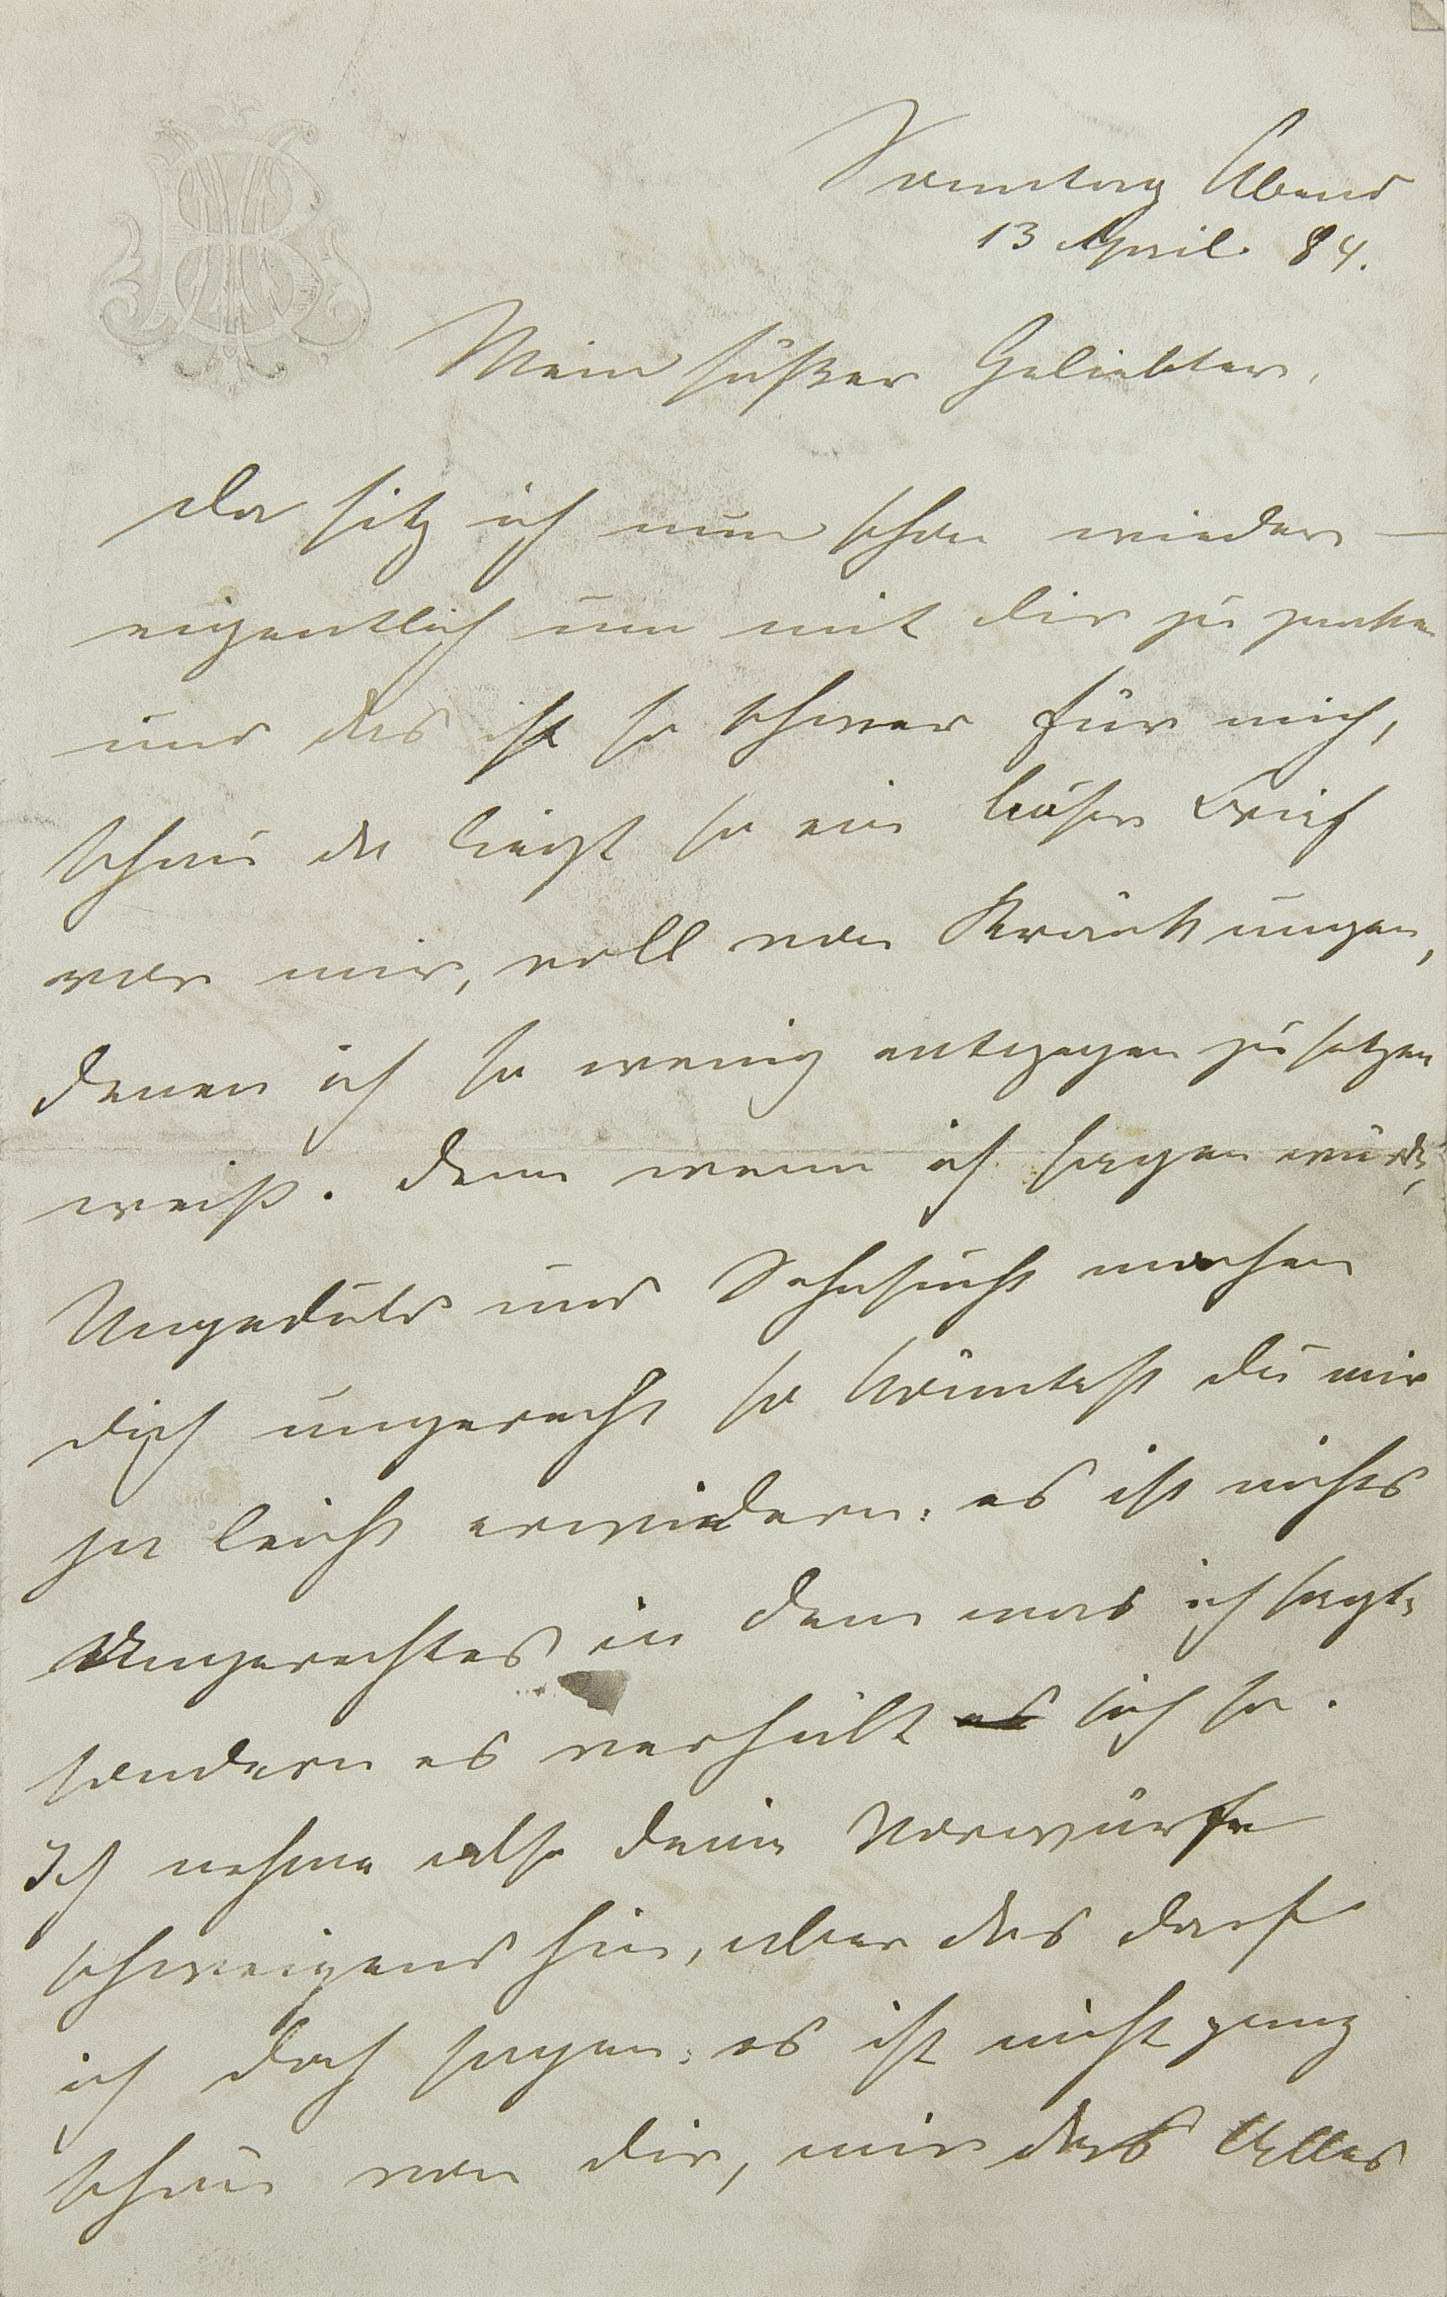 Sonntag Abend
13 April 84.
Mein süßer Geliebter,
da sitz ich nun schon wieder —
eigentlich um mit dir zu zanken
und das ist so schwer für mich,
schau da liegt so ein böser Brief
vor mir, voll von Kränkungen,
denen ich so wenig entgegen zu setzen
weiß. denn wenn ich sagen würde,
Ungeduld und Sehnsucht machen
dich ungerecht so könntest du mir
ja leicht erwiedern: es ist nichts
Ungerechtes in dem was ich sagte
sondern es verhält es sich so.
Ich nehme also deine Vorwürfe
schweigend hin, aber das darf
ich doch sagen: es ist nicht ganz
schön von dir, mir das Alles